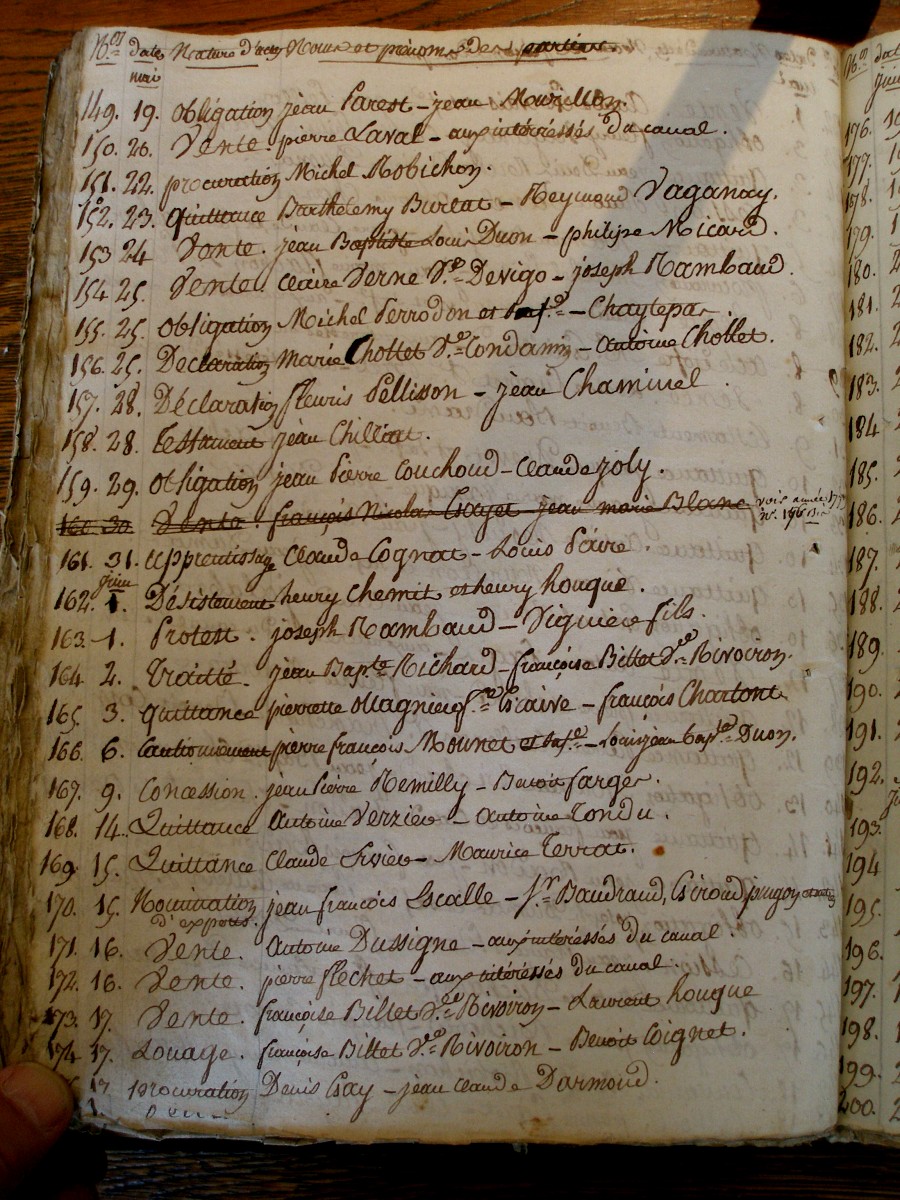 Nos. date Nature d'actes Noms et prénoms des parties
mai
149. 19. obligation jean Parest - jean Mourillon.
150. 20. Vente pierre Laval - aux intéressés du canal.
151. 22. procuration Michel Robichon.
152. 23. quittance Barthelemy Burlat - Reymond Vaganay.
153 24 Vente. jean Baptiste Louis Duon - philipe Nicard.
154 25. Vente. Claire Verne Ve. Devigo - joseph Rambaud.
155. 25. obligation Michel Perrodon - Chaytepa
156. 25. Declaration Marie Chollet Ve. Condamin - antoine Chollet.
157. 28. Déclaration fleuris Pellisson - jean Chaminel.
158. 28. Testament jean Chilliat.
159. 29. obligation jean Pierre Couchoud - Claude joly.
160. 30. Vente. françois Nicolas - jean marie Blanc voir année
161. 31. apprentissage Claude Cognat - Louis Péire.
juin
162. 1. Désistement henry Chemit et henry houque.
163 - 1. Protest. joseph Rambaud - Viguiere fils.
164 2. Traitté. jean Bapte. Richard - françoise Billet Ve. Rivoiron.
165 3. quittance pierrette Magnien - françois Chartont
166. 6. Cautionnement pierre françois Mounet - Louis jean bapte. Duon.
167. 9. Concession. jean Pierre Remilly - Benoit farges.
168. 14. Quittance antoine Verzieu - antoine Tondu.
169. 15. Quittance Claude - Maurice Terrat.
170. 15. Nomination jean françois Escalle - Sr. Baudraud, Giroud,
d'experts.
171. 16. Vente. antoine Dussigne - aux intéressés du canal.
172. 16. Vente. pierre flechet - aux intéressés du canal.
173. 17. Vente. françoise Billet Ve. Rivoiron - Laurent houque
174 17. Louage. françoise Billet Ve. Rivoiron - Benoit Coignet.
17. procuration Denis Gay - jean Claude Darmond.
Nos. dat
juin
176.
177.
178.
179.
180.
181.
182.
183.
184
185.
186.
187.
188.
189.
190.
191.
192.
193.
194
195.
196.
197.
198.
199.
200.